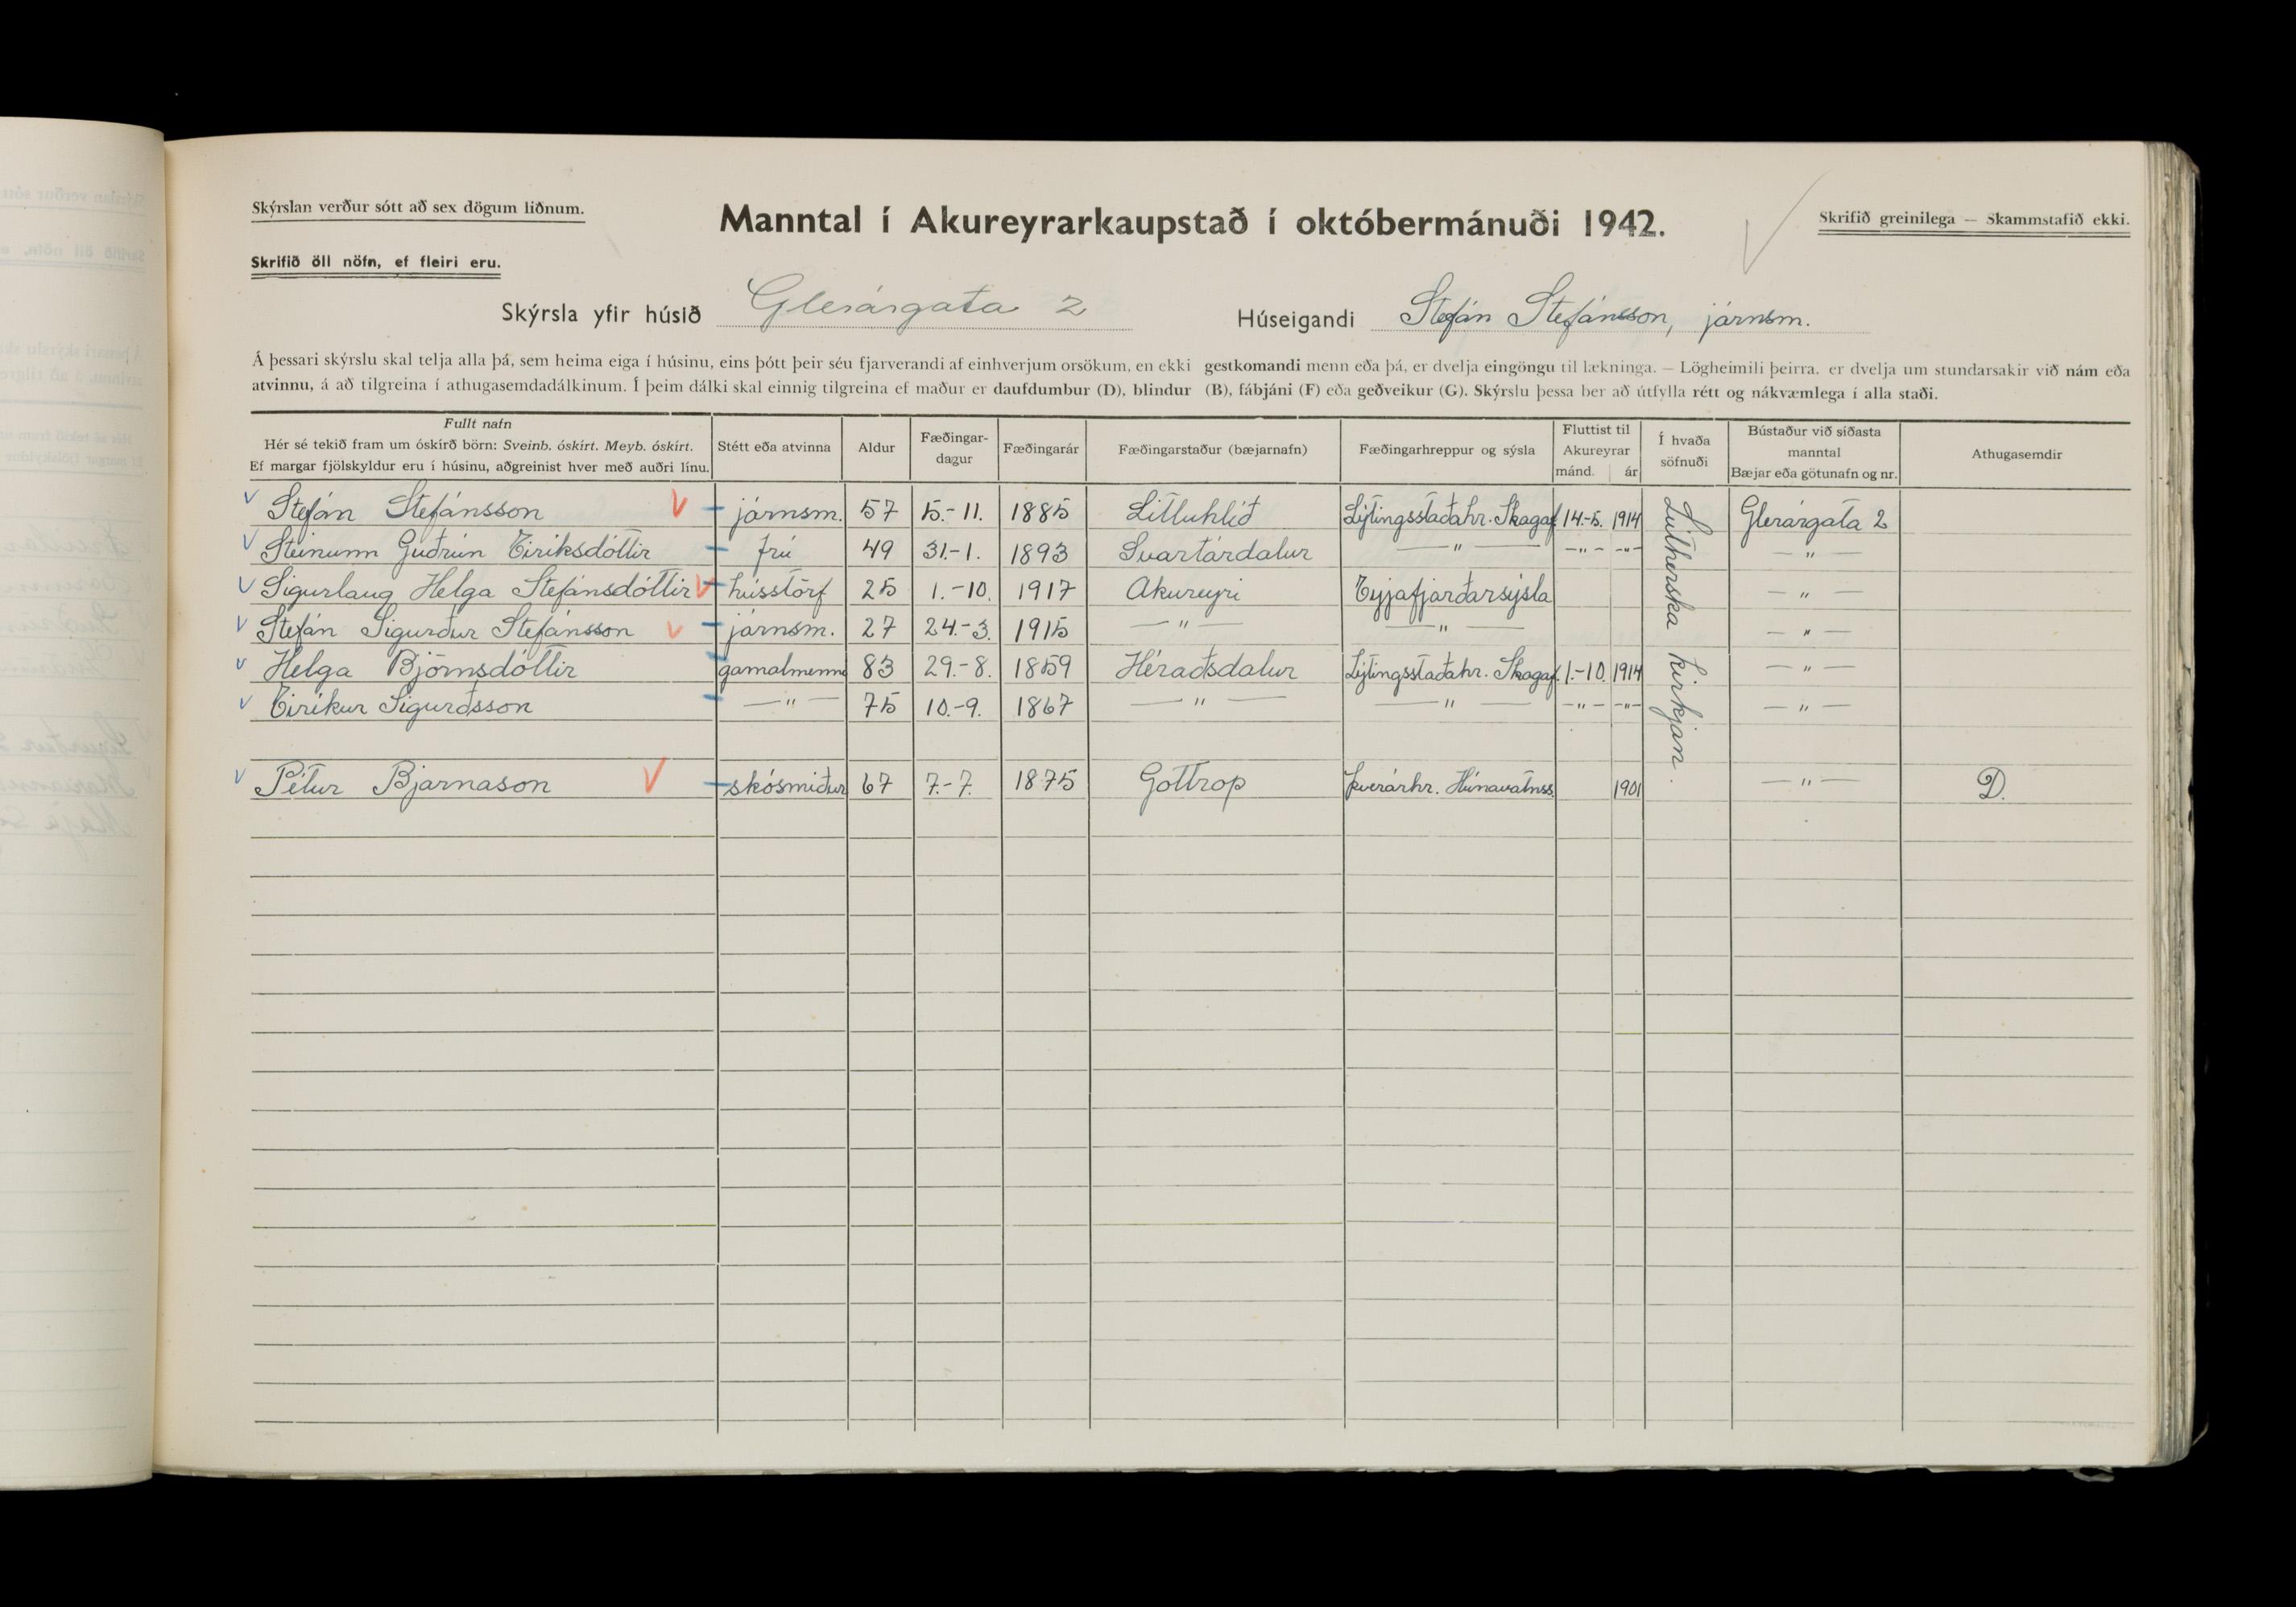 Skýrslan verður sótt að sex dögum liðnum.
Manntal í Akureyrarkaupstað í októbermánuði 1942.
Skrifið greinilega — Skammstafið ekki.
Skrifið öll nöfn, ef fleiri eru.
Skýrsla yfir húsið Glerárgata 2 Húseigandi Stefán Stefánsson, járnsm.
Á þessari skýrslu skal telja alla þá, sem heima eiga í húsinu, eins þótt þeir séu fjarverandi af einhverjum orsökum, en ekki gestkomandi menn eða þá, er dvelja eingöngu til lækninga. — Lögheimili þeirra, er dvelja um stundarsakir við nám eða
atvinnu, á að tilgreina í athugasemdadálkinum. Í þeim dálki skal einnig tilgreina ef maður er daufdumbur (D), blindur (B), fábjáni (F) eða geðveikur (G). Skýrslu þessa ber að útfylla rétt og nákvæmlega í alla staði.
Fullt nafn
Hér sé tekið fram um óskírð börn: Sveinb. óskírt. Meyb. óskírt.
Ef margar fjölskyldur eru í húsinu, aðgreinist hver með auðri línu.
Stétt eða atvinna
Aldur
Fæðingar-
dagur
Fæðingarár
Fæðingarstaður (bæjarnafn)
Fæðingarhreppur og sýsla
Fluttist til
Akureyrar
mánd. ár
Í hvaða
söfnuði
Bústaður við síðasta
manntal
Bæjar eða götunafn og nr.
Athugasemdir
Stefán Stefánsson járnsm. 57 5.-11. 1885 Litluhlíð Lýtingsstaðahr. Skagaf. 14.-5. 1914 Glerárgata 2
Steinunn Guðrún Eiríksdóttir frú 49 31.-1. 1893 Svartárdalur — " — -"- -"- — " —
Sigurlaug Helga Stefánsdóttir hússtörf 25 1.-10. 1917 Akureyri Eyjafjarðarsýsla — " —
Stefán Sigurður Stefánsson járnsm. 27 24.-3. 1915 — " — — " — — " —
Helga Björnsdóttir gamalmenni 83 29.-8. 1859 Héraðsdalur Lýtingsstaðahr. Skagaf. 1.-10. 1914 — " —
Eiríkur Sigurðsson — " — 75 10.-9. 1867 — " — — " — -"- -"- — " —
Lútherska kirkjan.
Pétur Bjarnason skósmiður 67 7.-7. 1875 Gottrop Þverárhr. Húnavatnss. 1901 — " — D.